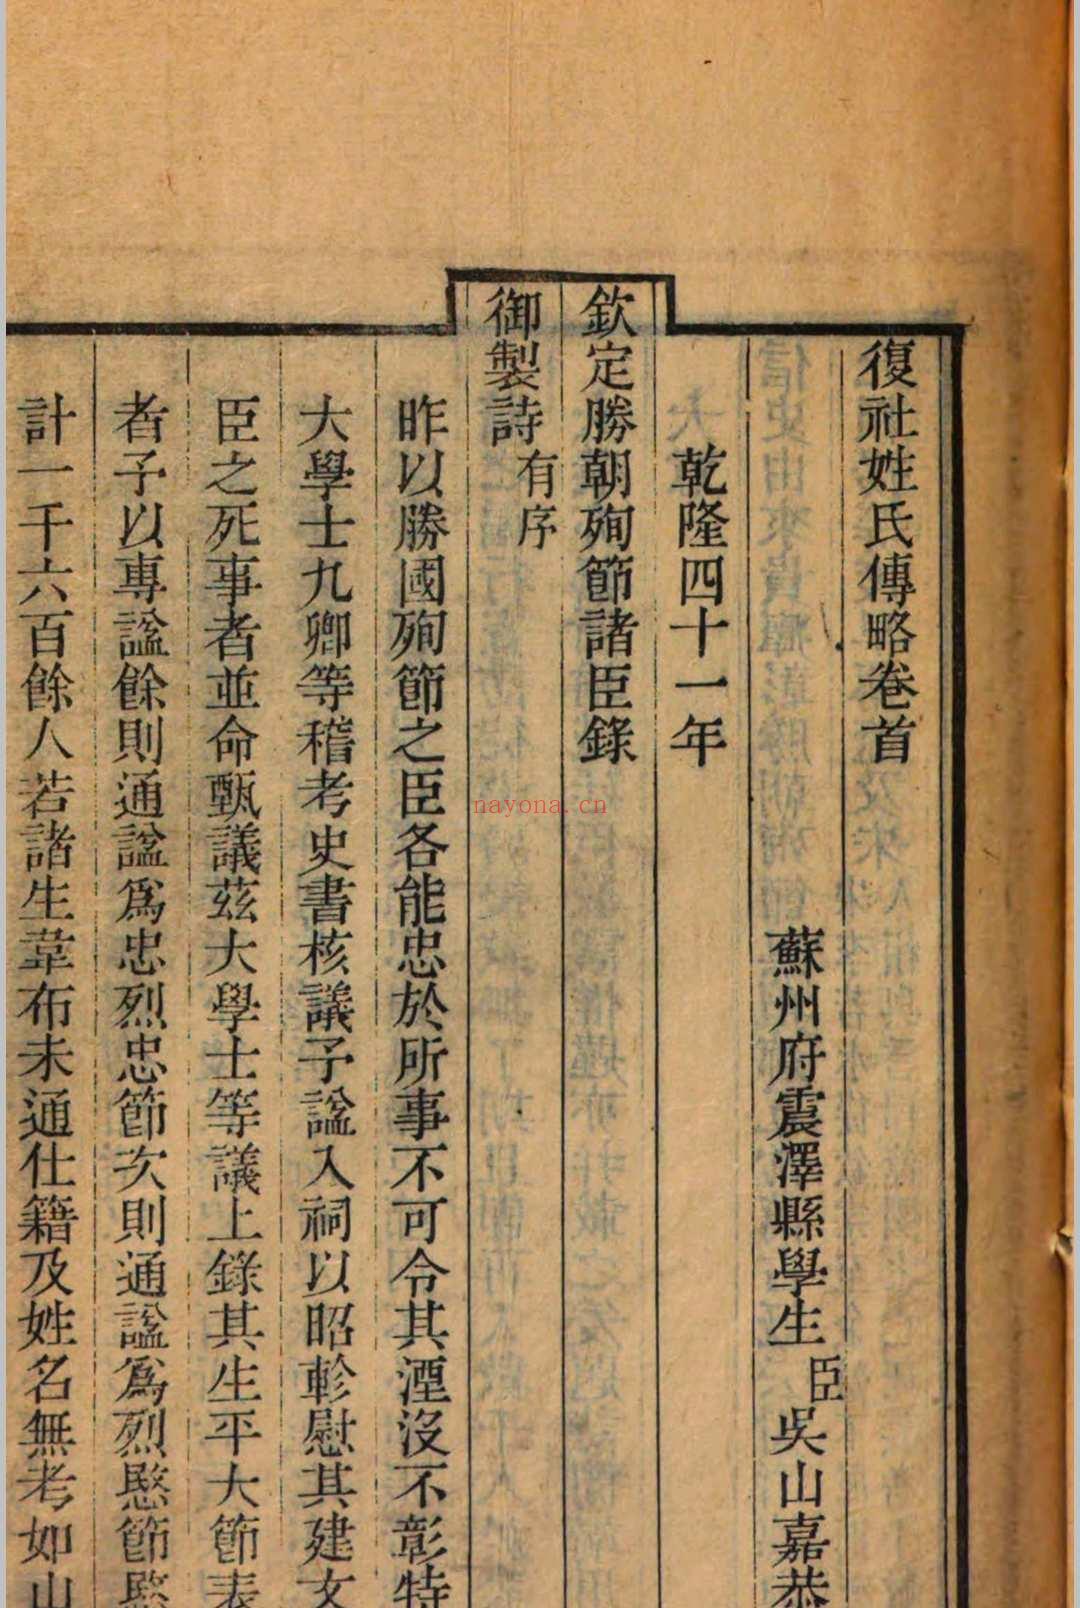 復社姓氏傳略卷首
蘇州府震澤縣學生臣吳山嘉恭
乾隆四十一年
欽定勝朝殉節諸臣錄
御製詩有序
昨以勝國殉節之臣各能忠於所事不可令其湮沒不彰特
大學士九卿等稽考史書核議予諡入祠以昭軫慰其建文
臣之死事者並命甄議茲大學士等議上錄其生平大節表
者予以專諡餘則通諡爲忠烈忠節次則通諡爲烈愍節愍
計一千六百餘人若諸生韋布未通仕籍及姓名無考如山
nayona.cn